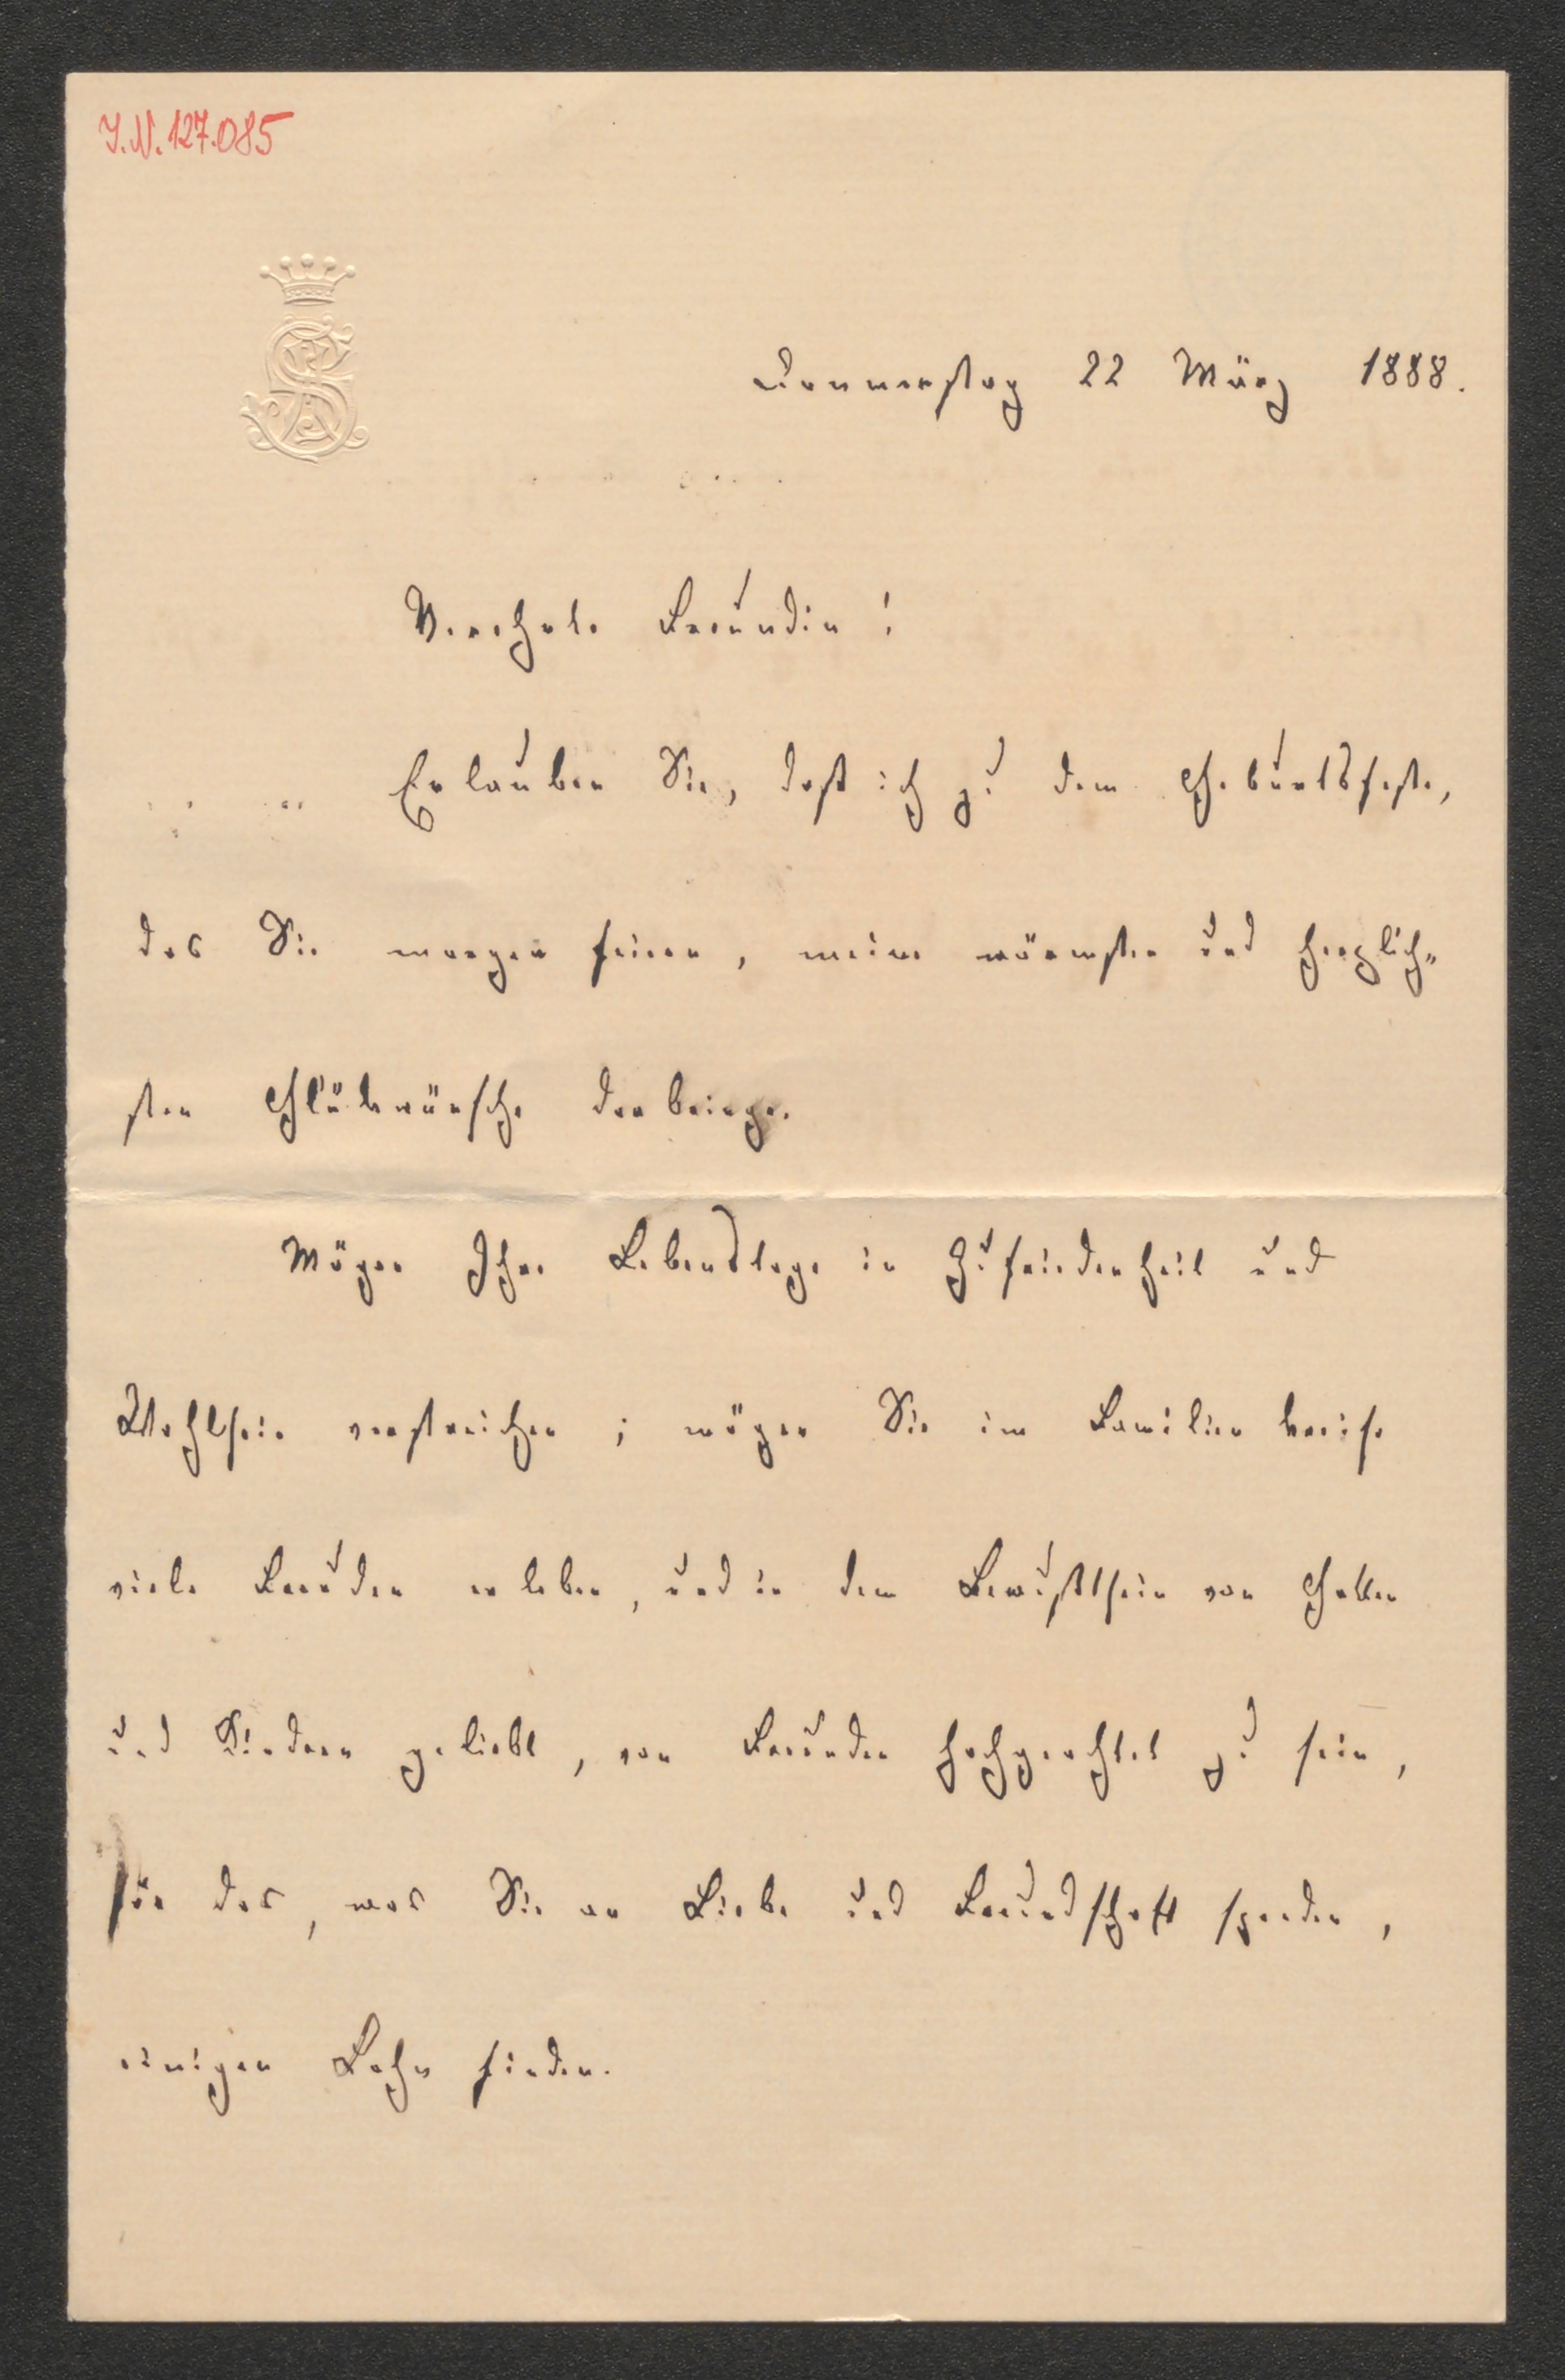 I.N. 127.085
Donnerstag 22 März 1888.
Verehrte Freundin!
Erlauben Sie, daß ich zu dem Geburtsfeste,
das Sie morgen feiern, meine wärmsten und herzlich„
sten Glükwünsche darbringe.
Mögen Ihre Lebenstage in Zufriedenheit und
Wohlsein verstreichen; mögen Sie im Familienkreise
viele Freuden erleben, und in dem Bewußtsein von Gatten
und Kindern geliebt, von Freunden hochgeachtet zu sein,
für das, was Sie an Liebe und Freundschaft spenden,
einigen Lohn finden.